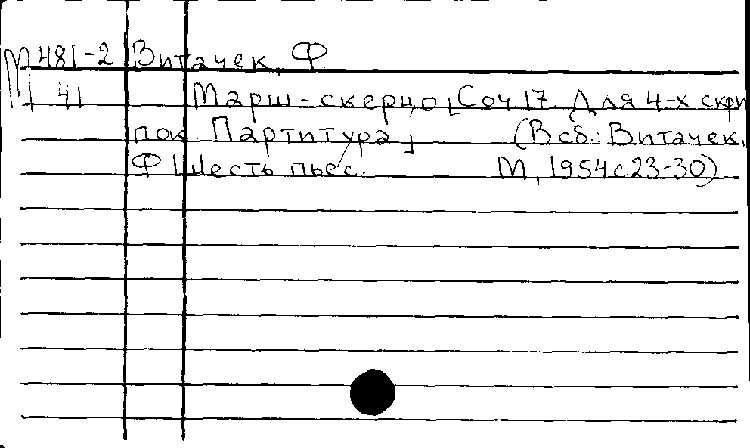 М 481-2 Витачек, Ф
41 Марш-скерцо [Соч 17. Для 4-х скри
пок Партитура] (В сб.: Витачек.
Ф Шесть пьес. М, 1954 с 23-30)